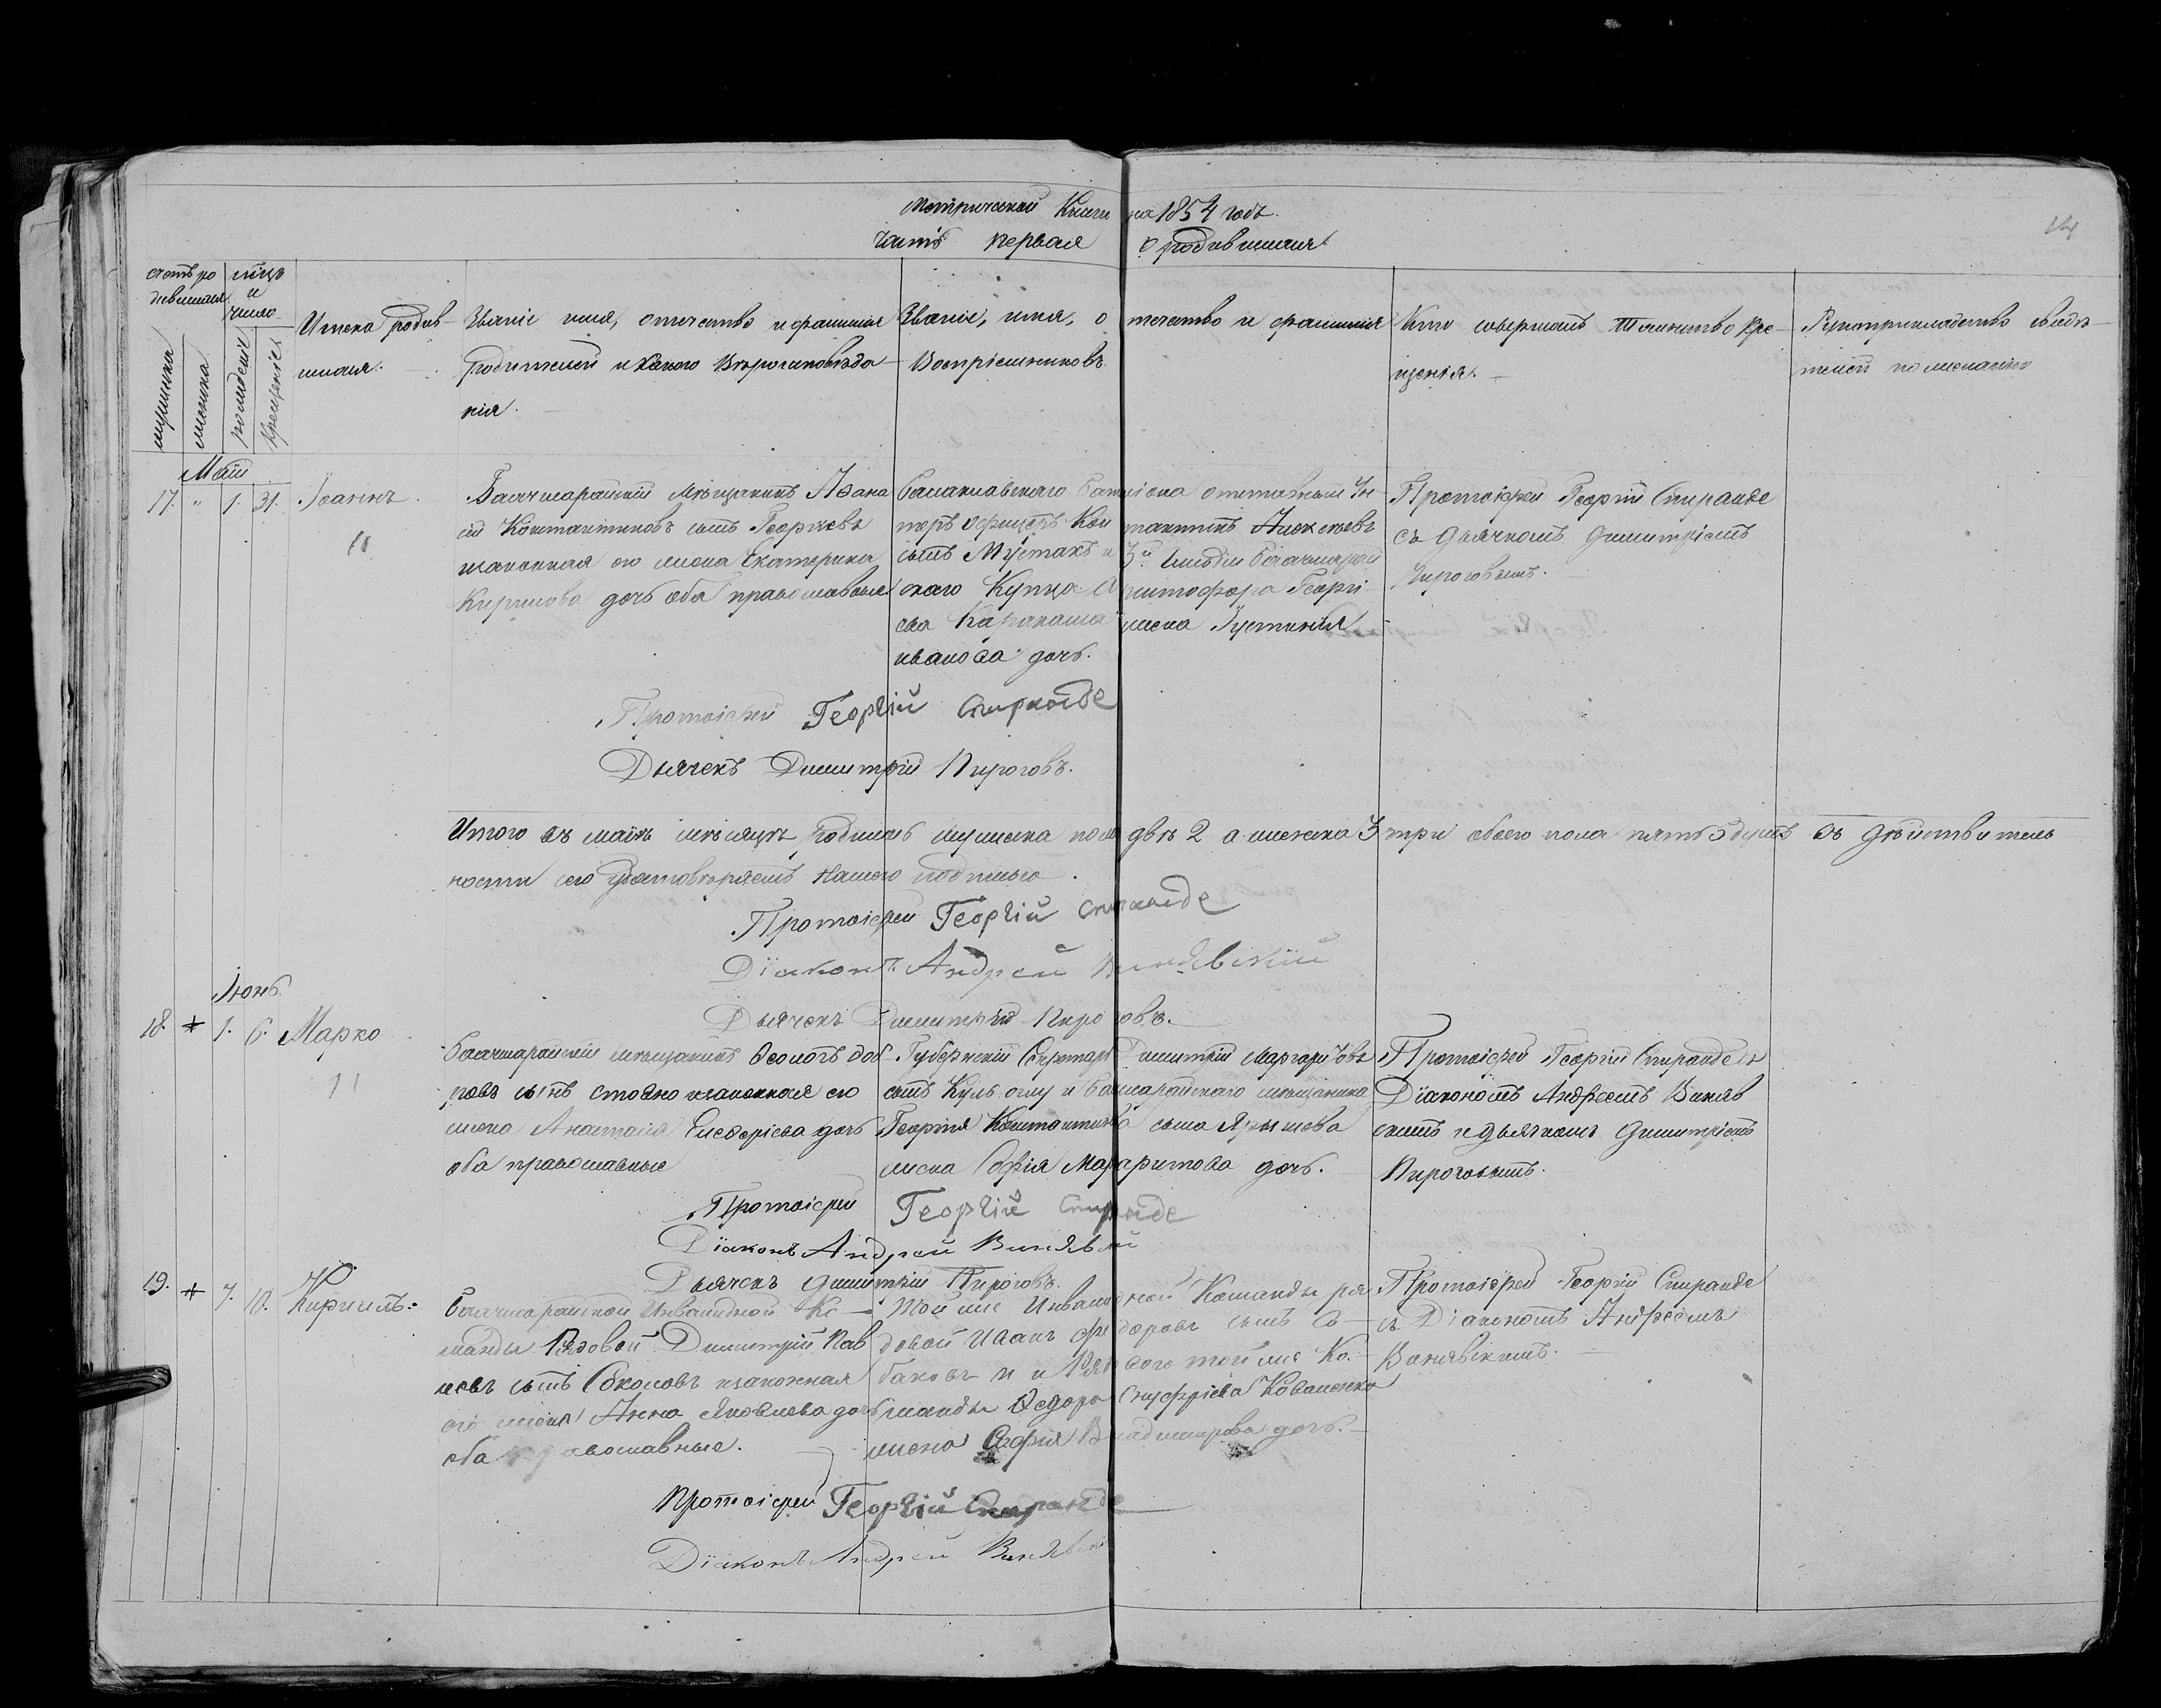 Метрической Книги на 1854 годъ.
14
часть первая о родившихся
счетъ родившихся
мѣсяцъ и число
мужеска
женска
рожденіе
крещеніе
Имена родив-
шихся.
Званіе имя, отчество и фамилія
родителей и какого Вѣроисповѣда-
нія.
Званіе, имя, отчество и фамилія
Воспріемниковъ
Кто совершалъ таинство кре-
щенія.
Рукоприкладство свидѣ-
телей по желанію
Май
17. " 1. 31. Іоаннъ.
11
Бахчисарайскій мѣщанинъ Афана
сій Константиновъ сынъ Георгіевъ
законная его жена Екатерина
Кирилова дочь оба православные
Балаклавскаго баталіона отставный Ун-
теръ офицеръ Константинъ Алексѣевъ
сынъ Мустакъ и 3й гильдіи бахчисарай
скаго Купца Христофора Георгі
ева Каракаша жена Іустинія
иванова дочь.
Протоіерей Георгій Спиранде
съ дьячкомъ Димитріемъ
Пироговымъ.
Протоіерей Георгій Спиранде
Дьячекъ Димитрій Пироговъ.
Итого въ маѣ мѣсяцѣ родилось мужеска пола двѣ 2 а женска 3 три обоего пола пять 5 душъ въ дѣйствитель
ности сего удостовѣряемъ нашею подписью.
Протоіерей Георгій Спиранде
Діаконъ Андрей
Дьячекъ Димитрій Пироговъ.
Іюнь
18. * 1. 6. Марко
11
бахчисарайскій мѣщанинъ Ѳеологъ
сынъ Стояно законная его
жена Анастасія Елевѳеріева дочь
оба православные
Губернскій Секретарь Димитрій Маргаритовъ
сынъ Куль оглу и бахчисарайскаго мѣщанина
Георгія Константинова сына
жена Софія Маргаритова дочь.
Протоіерей Георгій Спиранде съ
Діакономъ Андреемъ Виняв
скимъ и дьячкомъ Димитріемъ
Пироговымъ.
Протоіерей Георгій Спиранде
Діаконъ Андрей Винявскій
Дьячекъ Димитрій Пироговъ.
19. * 7. 10. Кирилъ.
бахчисарайской Инвалидной Ко-
манды Рядовой Димитрій Пав
ловъ сынъ Соколовъ законная
его жена Анна Яковлева дочь
оба православные.
Той же Инвалидной Команды ря
довой Иванъ Федоровъ сынъ Со-
баковъ и Рядового той же Ко-
манды Ѳедора Онуфріева Коваленко
жена Софія Владимірова дочь.
Протоіерей Георгій Спиранде
съ Діакономъ Андреемъ
Винявскимъ.
Протоіерей Георгій Спиранде
Діаконъ Андрей